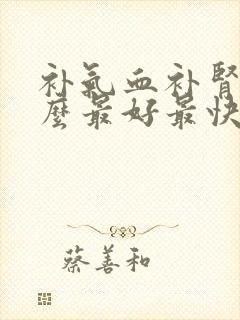 补氣血补腎
麼最好最快
蔡善和